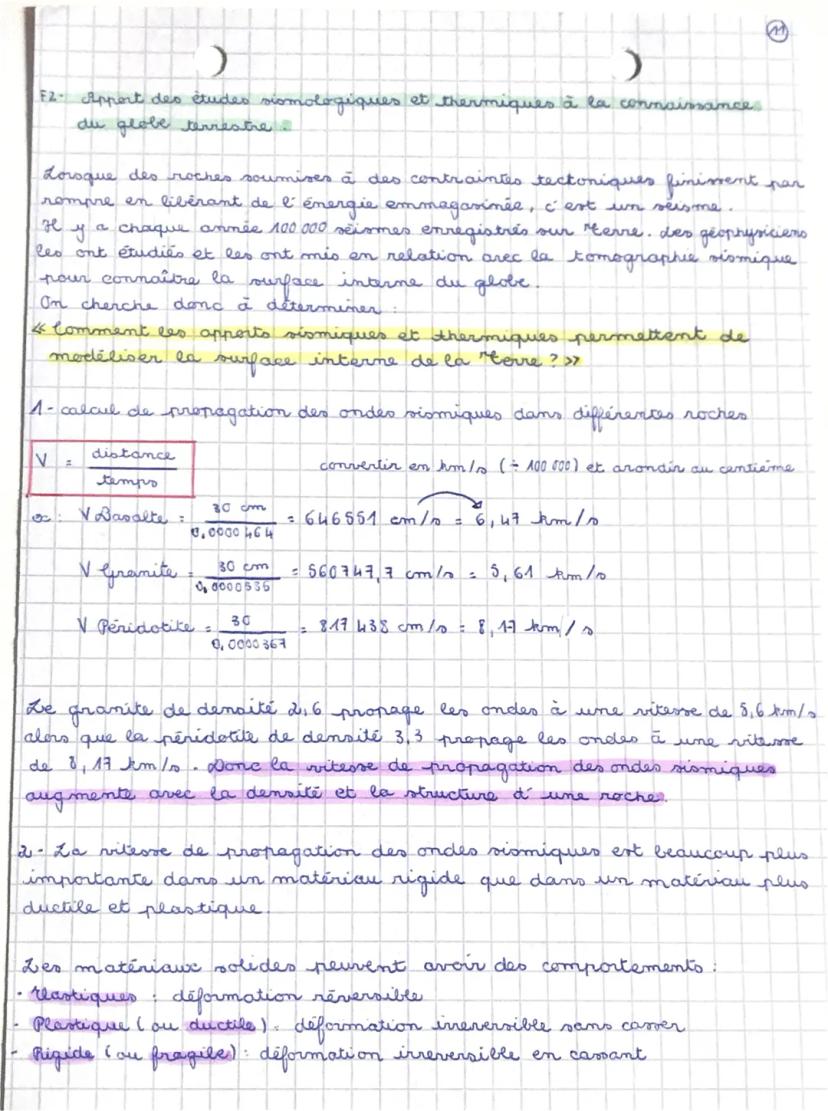 11
F2- Apport des études sismologiques et thermiques à la connaissance
du globe terrestre.
Lorsque des roches soumises à des contraintes tectoniques finissent par
rompre en libérant de l'énergie emmagasinée, c'est un séisme.
Il y a chaque année 100 000 séismes enregistrés sur Terre. Les géophysiciens
les ont étudiés et les ont mis en relation avec la tomographie sismique
pour connaître la surface interne du globe.
On cherche donc à déterminer :
« Comment les apports sismiques et thermiques permettent de
modéliser la surface interne de la Terre ? »
1- calcul de propagation des ondes sismiques dans différentes roches
V = distance / temps
convertir en km/s (÷ 100 000) et arondir au centième
ex : V Basalte = 30 cm / 0,0000464 = 646551 cm/s = 6,47 km/s
V Granite = 30 cm / 0,0000535 = 560747,7 cm/s = 5,61 km/s
V Péridotite = 30 / 0,0000367 = 817 438 cm/s = 8,17 km/s
Le granite de densité 2,6 propage les ondes à une vitesse de 5,6 km/s
alors que la péridotite de densité 3,3 propage les ondes à une vitesse
de 8,17 km/s. Donc la vitesse de propagation des ondes sismiques
augmente avec la densité et la structure d'une roche.
2- La vitesse de propagation des ondes sismiques est beaucoup plus
importante dans un matériau rigide que dans un matériau plus
ductile et plastique.
Les matériaux solides peuvent avoir des comportements :
- Elastiques : déformation réversible
- Plastique (ou ductile) : déformation irreversible sans casser
- Rigide (ou fragile) : déformation irreversible en cassant